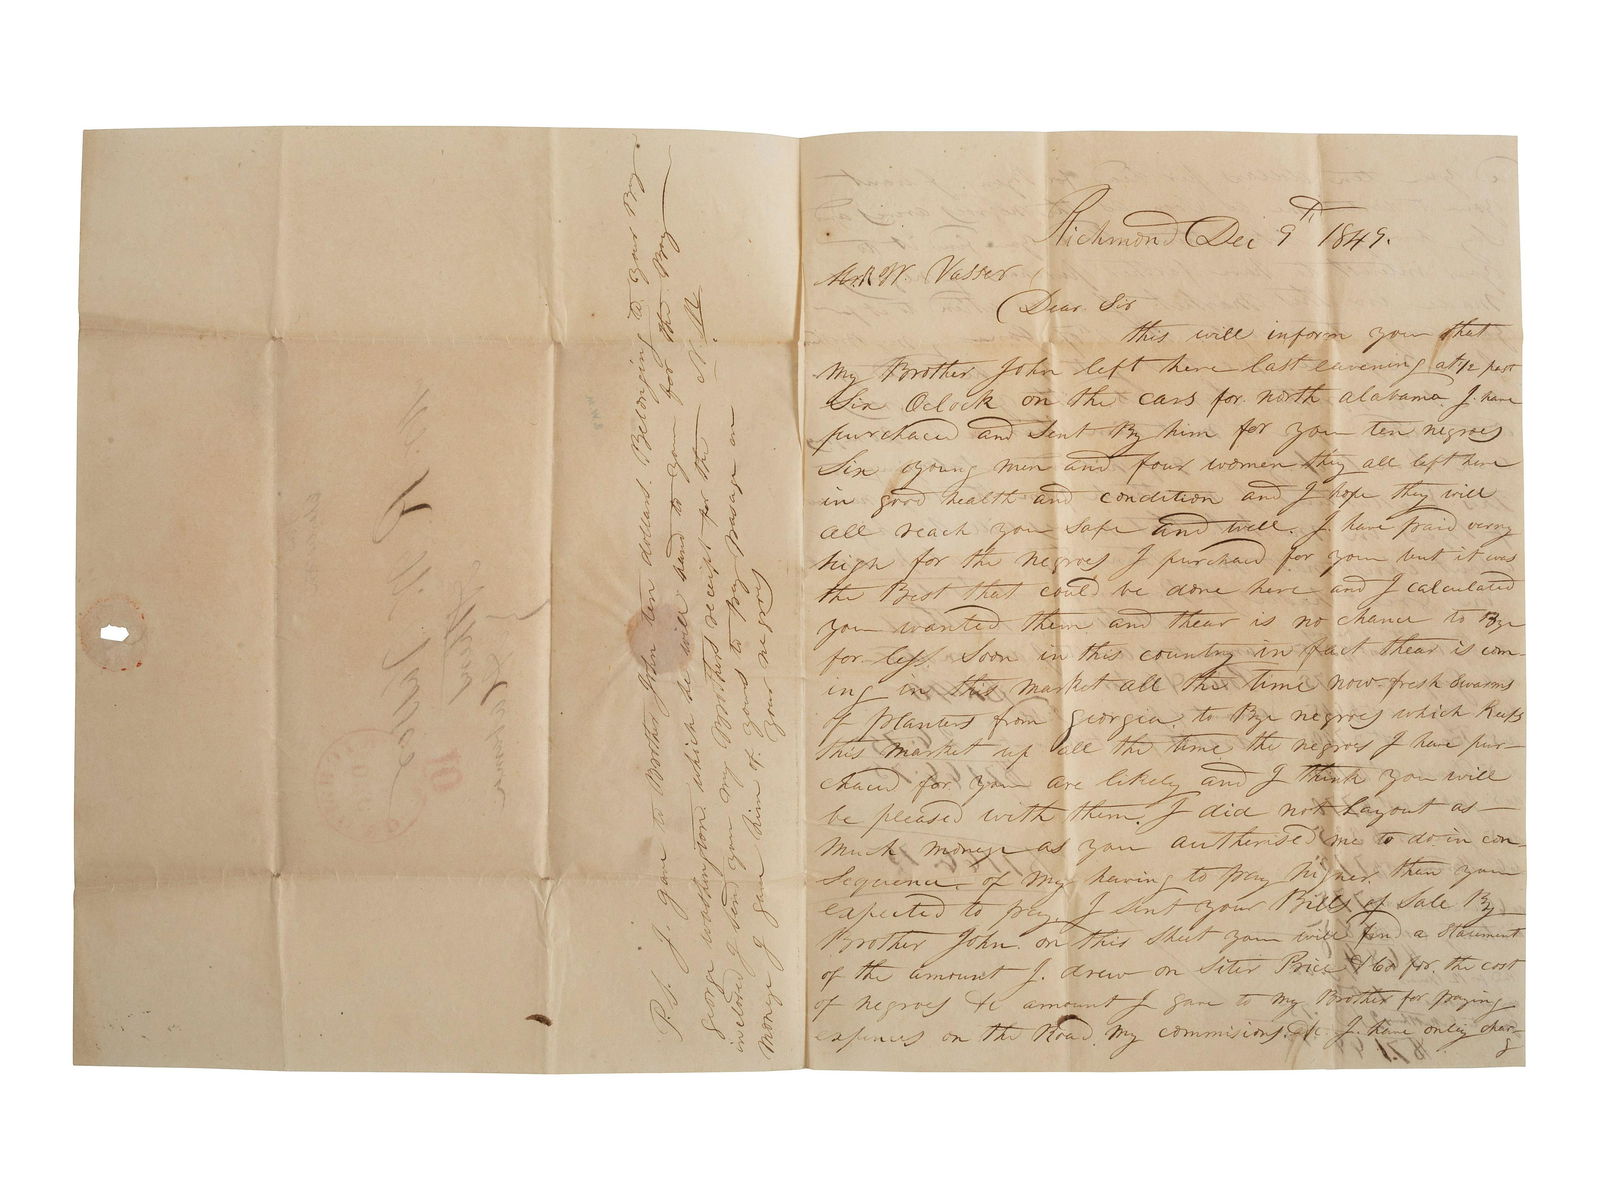 Richmond Dec 9th 1849.
Mr R W. Vasser
Dear Sir
this will inform you that
My Brother John left here last eavening at 1/2 past
Six Oclock on the cars for north alabama I have
purchaced and sent By him for you ten negroes
Six young men and four women they all left here
in good health and condition and I hope they will
all reach you safe and well. I have paid verry
high for the negroes I purchaced for you but it was
the Best that could be done here and I calculated
you wanted them and thear is no chance to Bye
for less. Soon in this country in fact thear is com-
ing in this market all the time now fresh swarms
of planters from Georgia to Bye negroes which Keeps
this market up all the time the negroes I have pur-
chaced for you are likely and I think you will
be pleased with them. I did not Layout as
much moneye as you autherised me to do in con-
sequence of my having to pay higher then you
expected to pay. I sent your Bills of Sale By
Brother John. on this sheet you will find a Statement
of the amount I drew on Siter Price & Co for the cost
of negroes &c amount I gave to my Brother for paying
expences on the Road. my commisions &c. I have onley charg
P.S. I gave to Brother John ten dollars. Belonging to your Boy
George washington which he will hand to you for the Boy
inclosed I send you my Brothers receipt for the
moneye I gave him of yours to pay passage on
your negroes